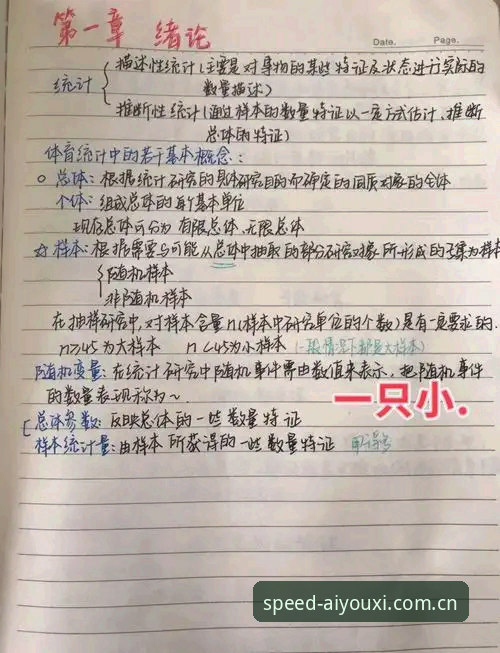 第一章 绪论
Date. Page.
描述性统计(主要是对事物的某些特征及状态进行实际的
数量描述)
统计
推断性统计(通过样本的数量特征以一定方式估计、推断
总体的特征)
体育统计中的若干基本概念:
总体:根据统计研究的具体研究目的而确定的同质对象的全体
个体:组成总体的每个基本单位
现存总体可分为 有限总体、无限总体
☆ 样本:根据需要与可能从总体中抽取的部分研究对象所形成的子集为样本
随机样本
非随机样本
在抽样研究中,对样本含量n(样本中研究单位的个数)是有一定要求的.
n≥45为大样本 n<45为小样本 (一般情况下都是大样本)
随机变量:在统计研究中随机事件需由数值来表示,把随机事件
的数量表现称为~
一只小.
总体参数:反映总体的一些数量特征
样本统计量:由样本所获得的一些数量特征
speed-aiyouxi.com.cn